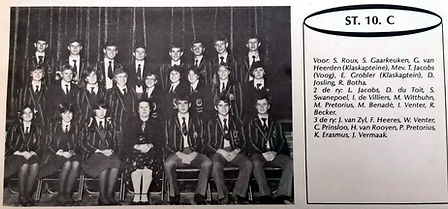 ST. 10. C
Voor: S. Roux, S. Gaarkeuken, G. van
Heerden (Klaskapteine), Mev. T. Jacobs
(Voog), E. Grobler (Klaskaptein), D.
Josling, R. Botha.
2 de ry: L. Jacobs, D. du Toit, S.
Swanepoel, I. de Villiers, M. Witthuhn,
M. Pretorius, M. Benadé, I. Venter, R.
Becker.
3 de ry: J. van Zyl, F. Heeres, W. Venter,
C. Prinsloo, H. van Rooyen, P. Pretorius,
K. Erasmus, J. Vermaak.